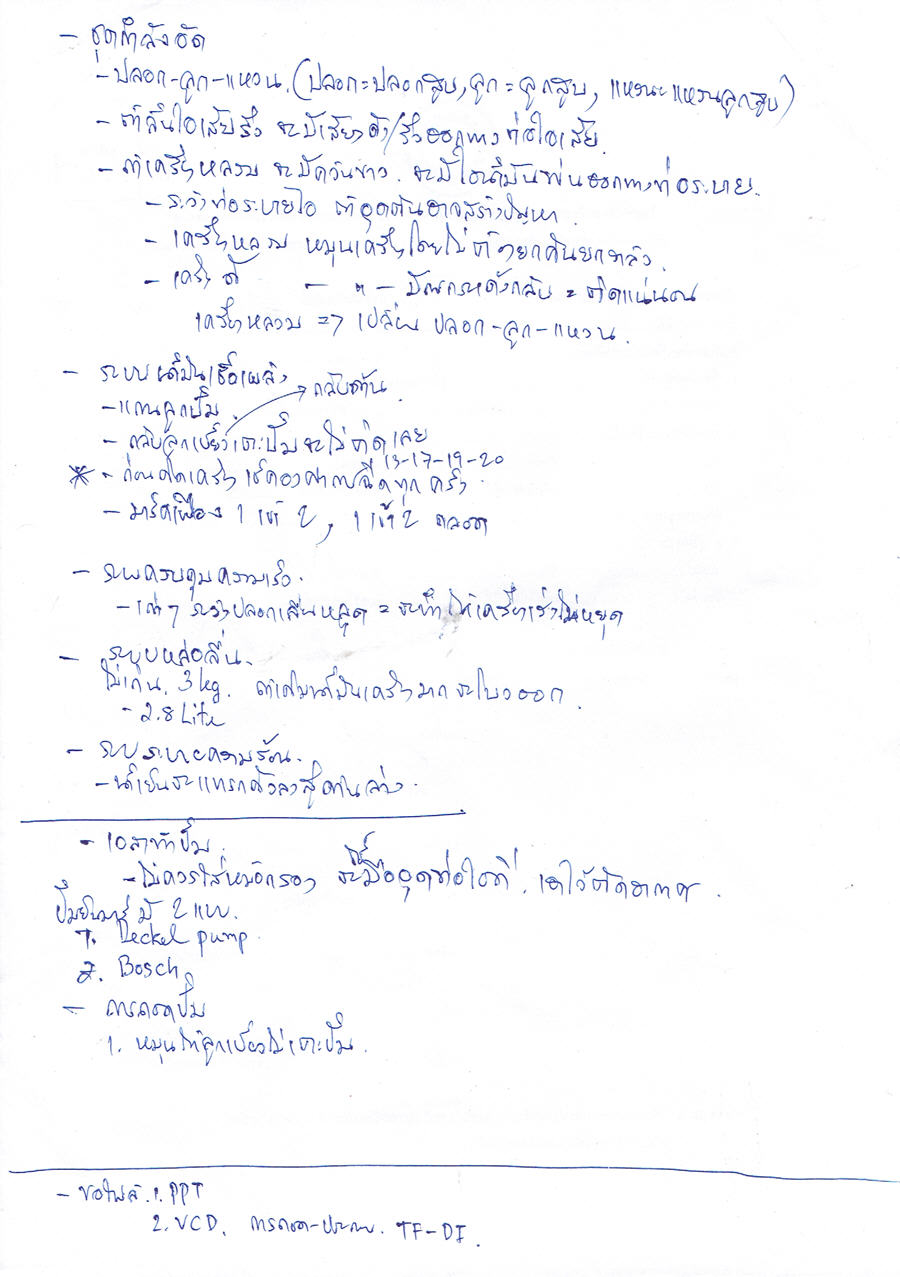 - ชุดกำลังอัด
- ปลอก-ลูก-แหวน. (ปลอก=ปลอกสูบ, ลูก = ลูกสูบ, แหวน=แหวนลูกสูบ)
- ถ้าลิ้นไอเสียรั่ว จะมีเสียงดัง/รั่วออกทางท่อไอเสีย.
- ถ้าเครื่องหลวม จะมีควันขาว. จะมีไอน้ำมันพ่นออกทางท่อระบาย.
- ระวังท่อระบายไอ ถ้าอุดตันอาจสร้างปัญหา
- เครื่องหลวม หมุนเครื่องโดยไม่ต้องยกคันยกวาล์ว.
- เครื่องดี — " — มีเสียงดังกลับ = ติดแน่นอน
เครื่องหลวม => เปลี่ยน ปลอก-ลูก-แหวน.
- ระบบน้ำมันเชื้อเพลิง
- แกนลูกปั๊ม. กลับด้าน
- กลับลูกเบี้ยวเตะปั๊ม จะไม่ติดเลย
13-17-19-20
* - ก่อนติดเครื่อง เช็คองศาการฉีดทุกครั้ง.
- มาร์คเฟือง 1 เข้า 2, 1 เข้า 2 ตลอด
- ระบบควบคุมความเร็ว.
- เก่าๆ ระวังปลอกเลื่อนหลุด = จะทำให้เครื่องเร่งไม่หยุด
- ระบบหล่อลื่น.
ไม่เกิน 3 kg. ถ้าเติมน้ำมันเครื่องมาก จะไหลออก.
- 2.8 Lite
- ระบบระบายความร้อน.
- น้ำเย็นจะแทรกตัวลงสู่ด้านล่าง.
- 10 สาขาปั๊ม.
- ไม่ควรใส่หม้อกรอง ใช้มืออุดท่อไอดี. เอาไว้ตัดอากาศ.
ปั๊มยันมาร์ มี 2 แบบ.
1. Deckel pump.
2. Bosch
- การถอดปั๊ม
1. หมุนให้ลูกเบี้ยวไม่เตะปั๊ม.
- ขอไฟล์. 1. PPT
2. VCD. การถอด-ประกอบ. TF-DI.